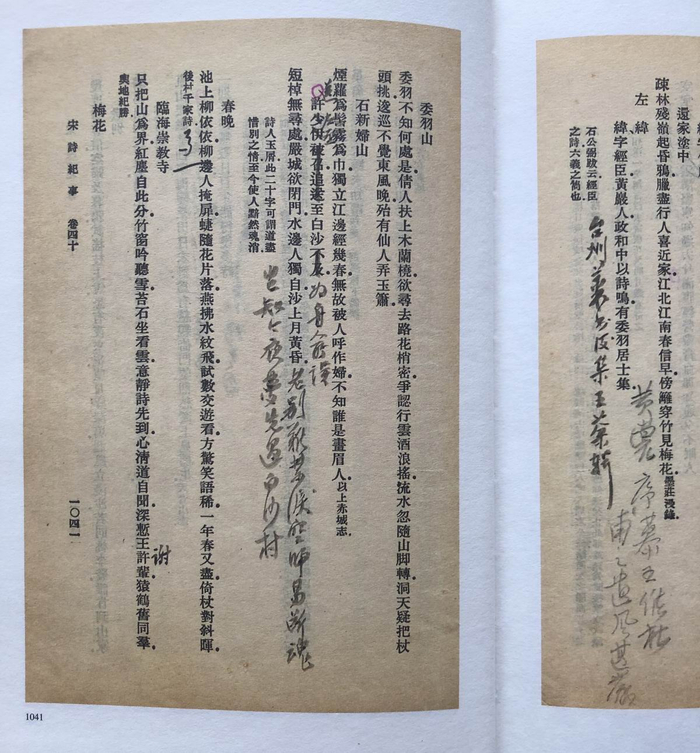 還家途中
疎林殘嶺起昏鴉臘盡行人喜近家江北江南春信早傍籬穿竹見梅花墨莊漫錄
左緯
緯字經臣黃巖人政和中以詩鳴有委羽居士集
石公弼跋云經臣
之詩六義之簡也
委羽山
委羽不知何處是倩人扶上木蘭橈欲尋去路花梢密爭認行雲酒浪搖流水忽隨山脚轉洞天疑把杖
頭挑逡巡不覺東風晚殆有仙人弄玉簫
石新婦山
煙蘿爲髻霧爲巾獨立江邊經幾春無故被人呼作婦不知誰是畫眉人以上赤城志
許少伊被召追送至白沙不及
短棹無尋處嚴城欲閉門水邊人獨自沙上月黃昏
詩人玉屑此二十字可謂道盡
惜別之情至今使人黯然魂消
豈知今夜夢先過白沙村
春晚
池上柳依依柳邊人掩扉蜨隨花片落燕拂水紋飛試數交遊看方驚笑語稀一年春又盡倚杖對斜暉
後村千家詩
臨海崇教寺
只把山爲界紅塵自此分竹窗吟聽雪苔石坐看雲意靜詩先到心清道自聞深慙王許輩猿鶴舊同羣
謝
輿地紀勝
梅花
宋詩紀事 卷四十
一〇四一
1041